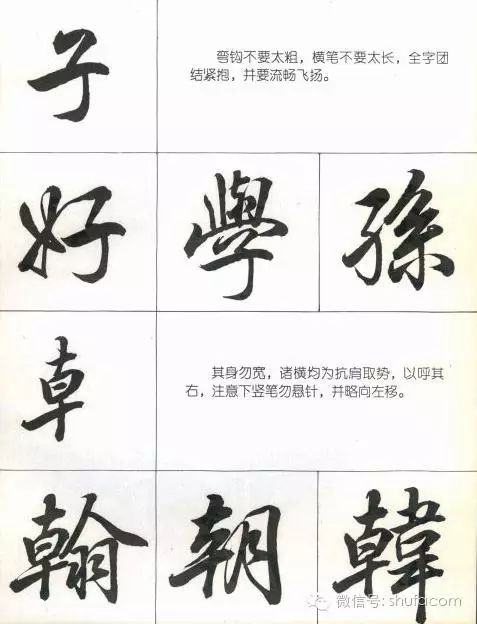 子
弯钩不要太粗，横笔不要太长，全字团
结紧抱，并要流畅飞扬。
好 學 孫
卓
其身勿宽，诸横均为抗肩取势，以呼其
右，注意下竖笔勿悬针，并略向左移。
翰 朝 韓
微信号: shufacom